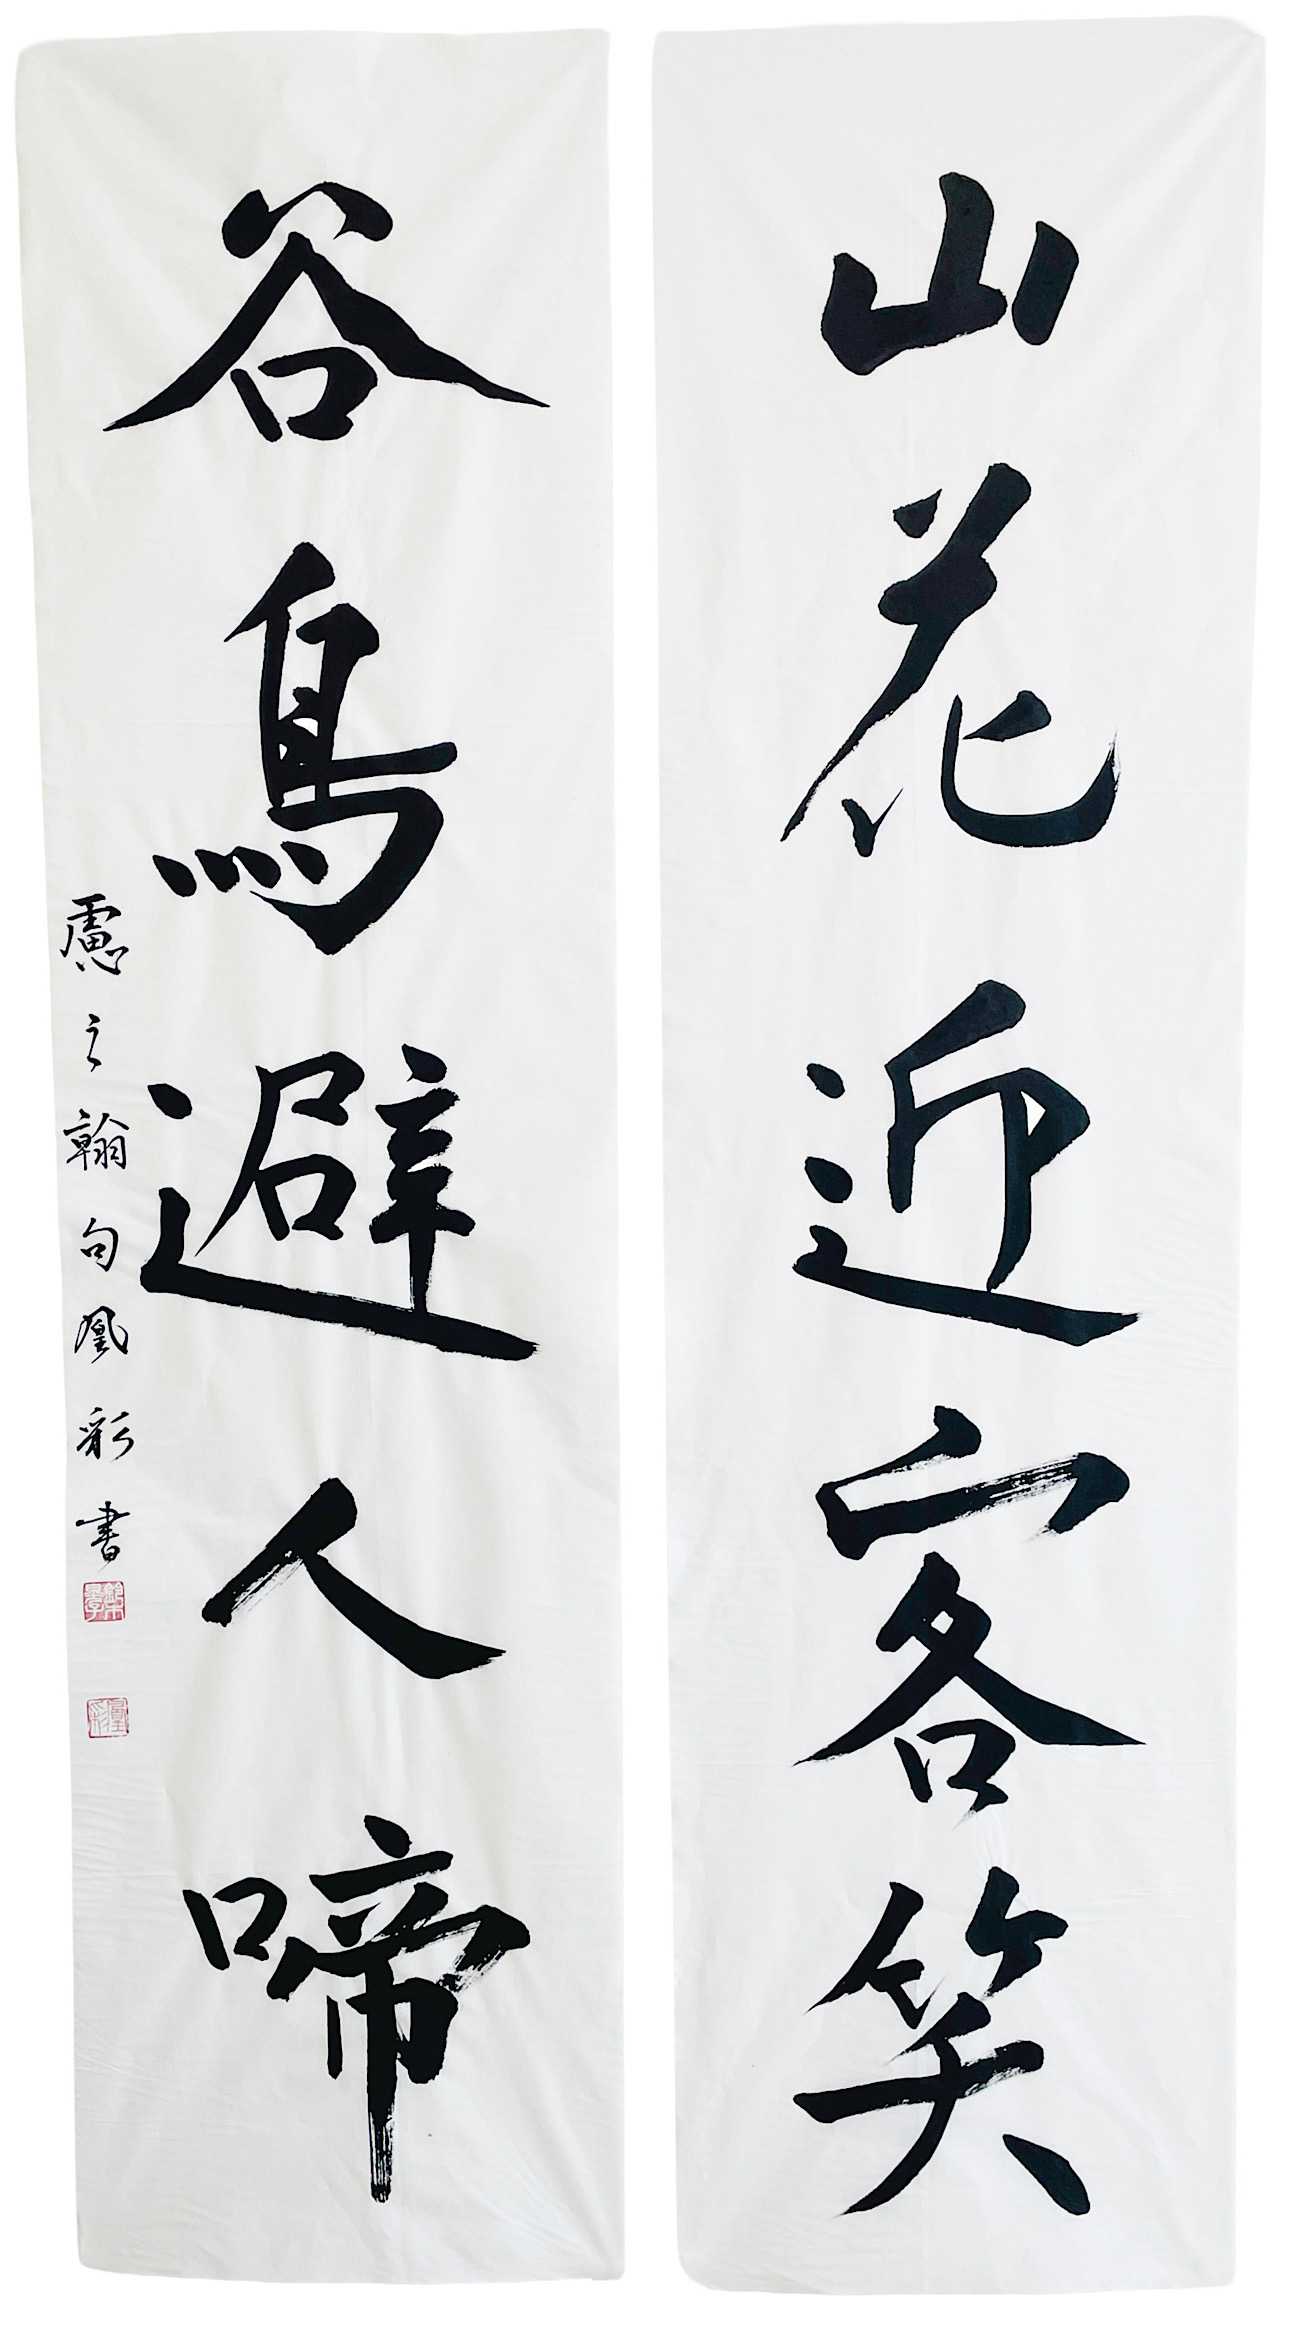 山花近客笑
谷鳥避人啼
慮之翰句凰彩書